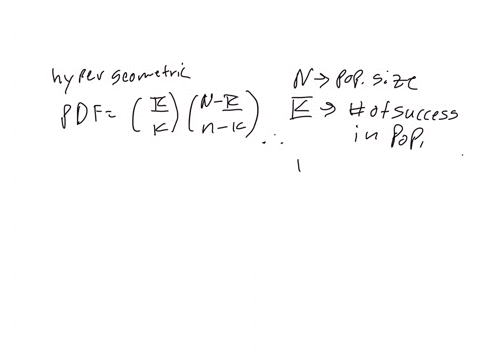 hypergeometric
PDF = (K k) (N-K n-k) ∴
N → pop. size
K → # of success
in pop.